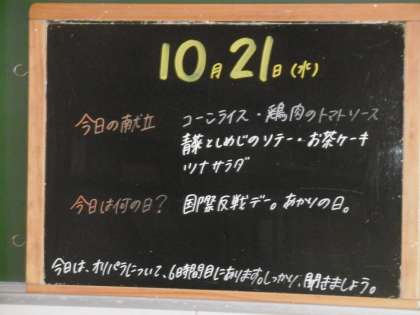 10月21日(水)
今日の献立 コーンライス・鶏肉のトマトソース
青菜としめじのソテー・お茶ケーキ
ツナサラダ
今日は何の日? 国際反戦デー。あかりの日。
今日は、オリパラについて、6時間目にあります。しっかり、聞きましょう。